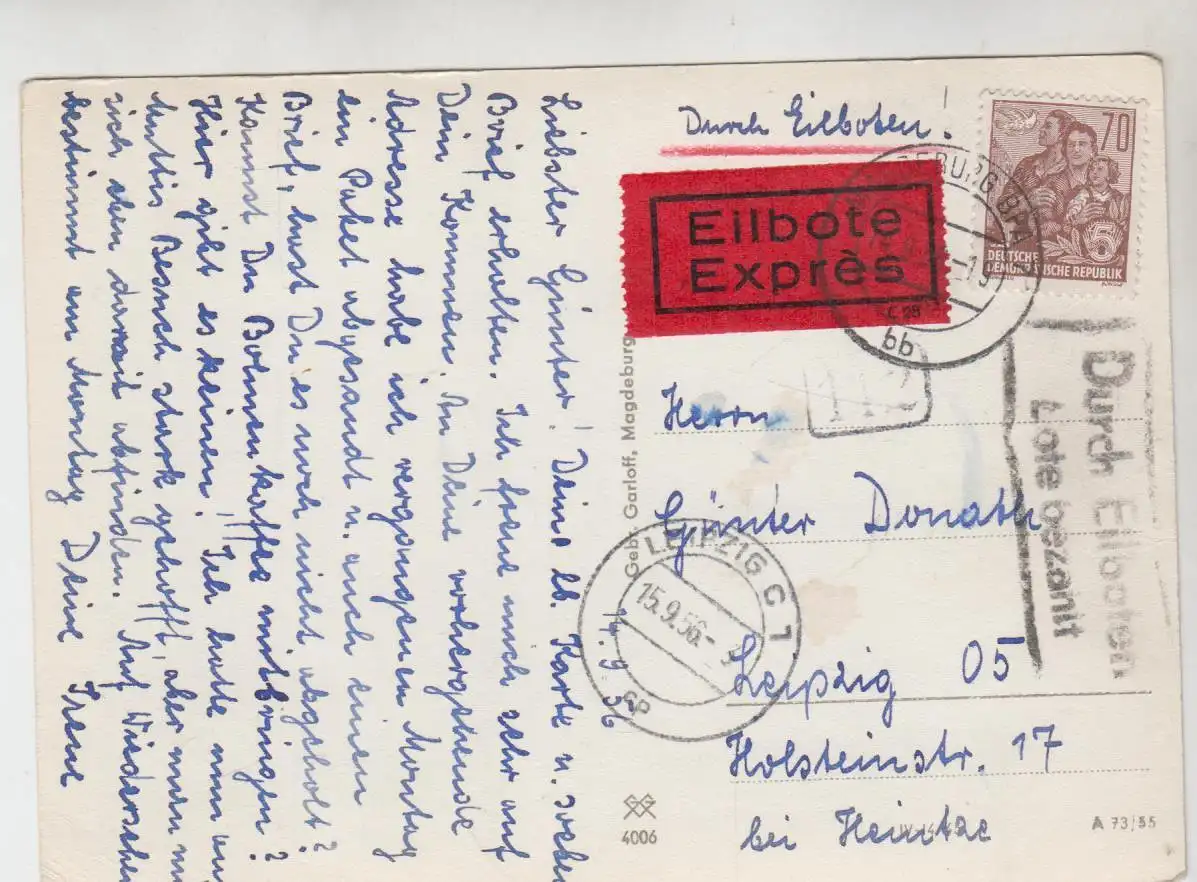 14.9.56
Liebster Günter! Deine lb. Karte u. soeben
Brief erhalten. Ich freue mich sehr auf
Dein Kommen. An Deine vorhergehende
Adresse habe ich vergangenen Montag
ein Paket abgesandt u. auch einen
Brief, hast Du es noch nicht abgeholt?
Kannst Du Bohnenkaffee mitbringen?
Hier gibt es keinen! Ich hatte nun auf
Muttis Besuch stark gehofft, aber man muß
sich eben damit abfinden. Auf Wiedersehen
bestimmt am Montag Deine Irene
Durch Eilboten!
Eilbote
Exprès
70
5
DEUTSCHE
DEMOKRATISCHE REPUBLIK
MAGDEBURG BPA
bb
Durch Eilboten
Lote bezahlt
Herrn
Günter Donath
LEIPZIG C 1
15.9.56
Leipzig O5
Holsteinstr. 17
bei Heintze
Gebr. Garloff, Magdeburg
4006
A 73/55